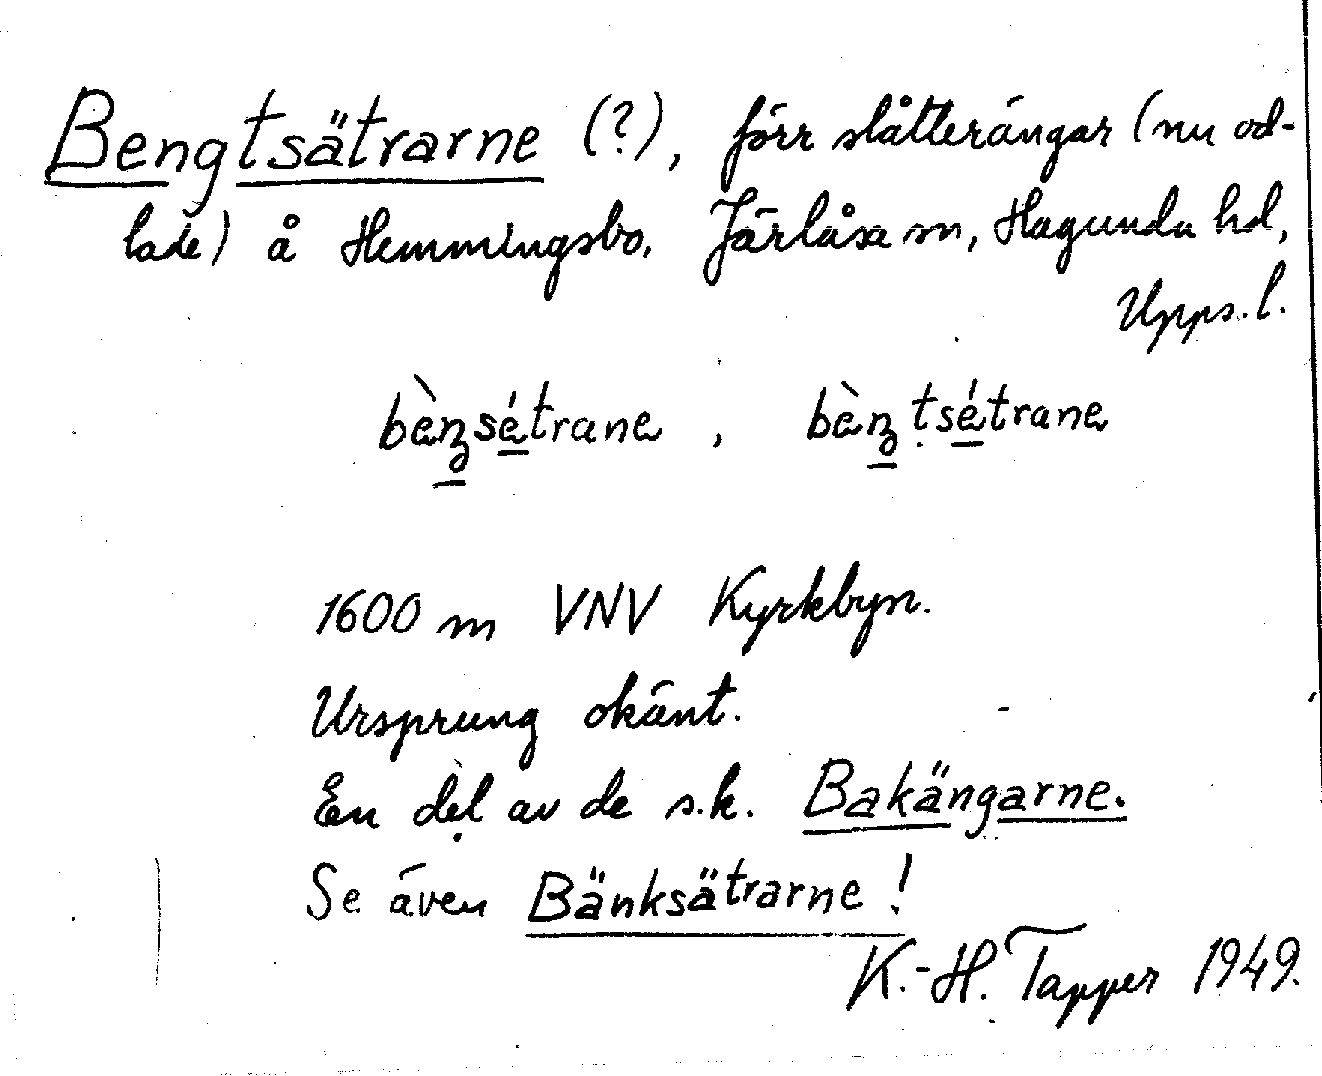 Bengtsätrarne (?), förr slåtterängar (nu od-
lade) å Hemmingsbo, Järlåsa sn, Hagunda hd,
Upps. l.
bèȵsétrane, bèȵtsétrane
1600 m VNV Kyrkbyn.
Ursprung okänt.
En del av de s.k. Bakängarne.
Se även Bänksätrarne!
K.-H. Tapper 1949.